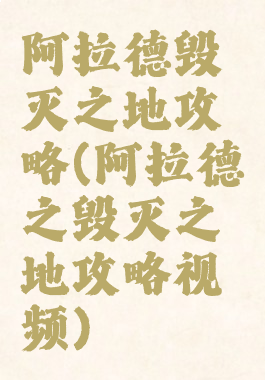 阿拉德毁
灭之地攻
略(阿拉德
之毁灭之
地攻略视
频)